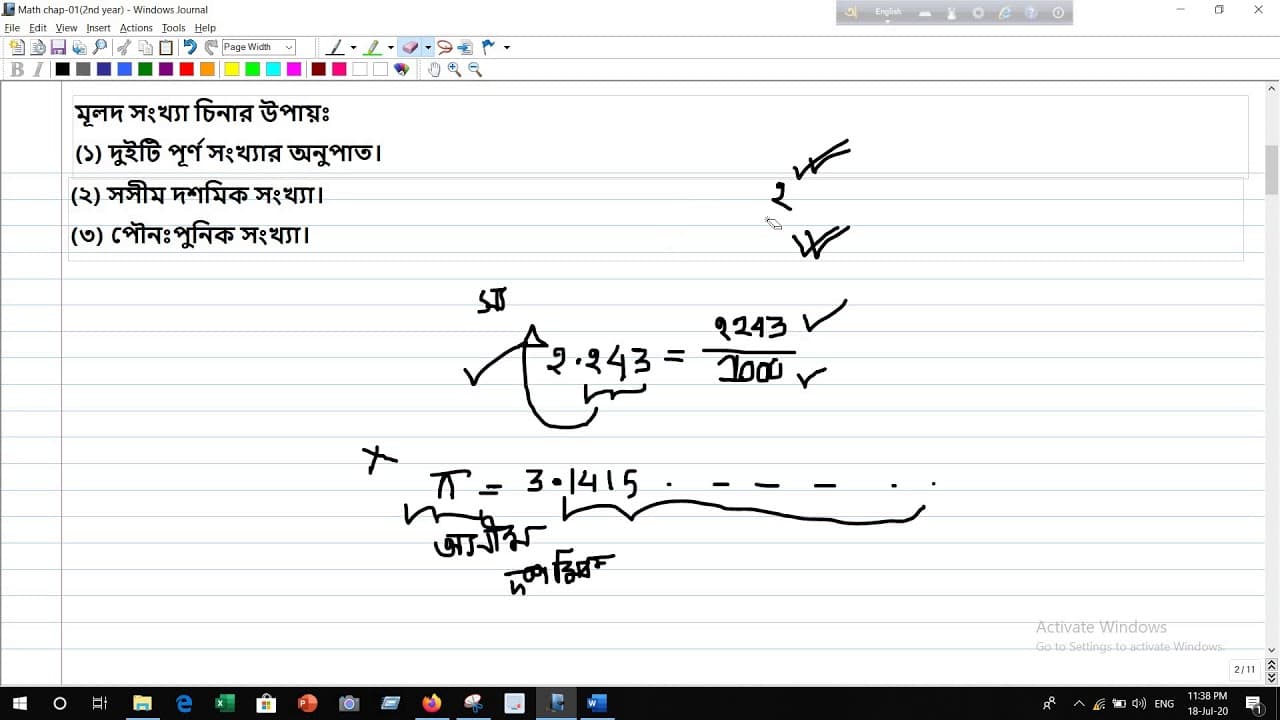 Math chap-01(2nd year) - Windows Journal
English
File Edit View Insert Actions Tools Help
Page Width
B I
মূলদ সংখ্যা চিনার উপায়ঃ
(১) দুইটি পূর্ণ সংখ্যার অনুপাত।
(২) সসীম দশমিক সংখ্যা।
(৩) পৌনঃপুনিক সংখ্যা।
2.243 = 2243
1000
π = 3.1415 . - - - . .
অসীম
দশমিক
Activate Windows
Go to Settings to activate Windows.
2 / 11
ENG
11:38 PM
18-Jul-20